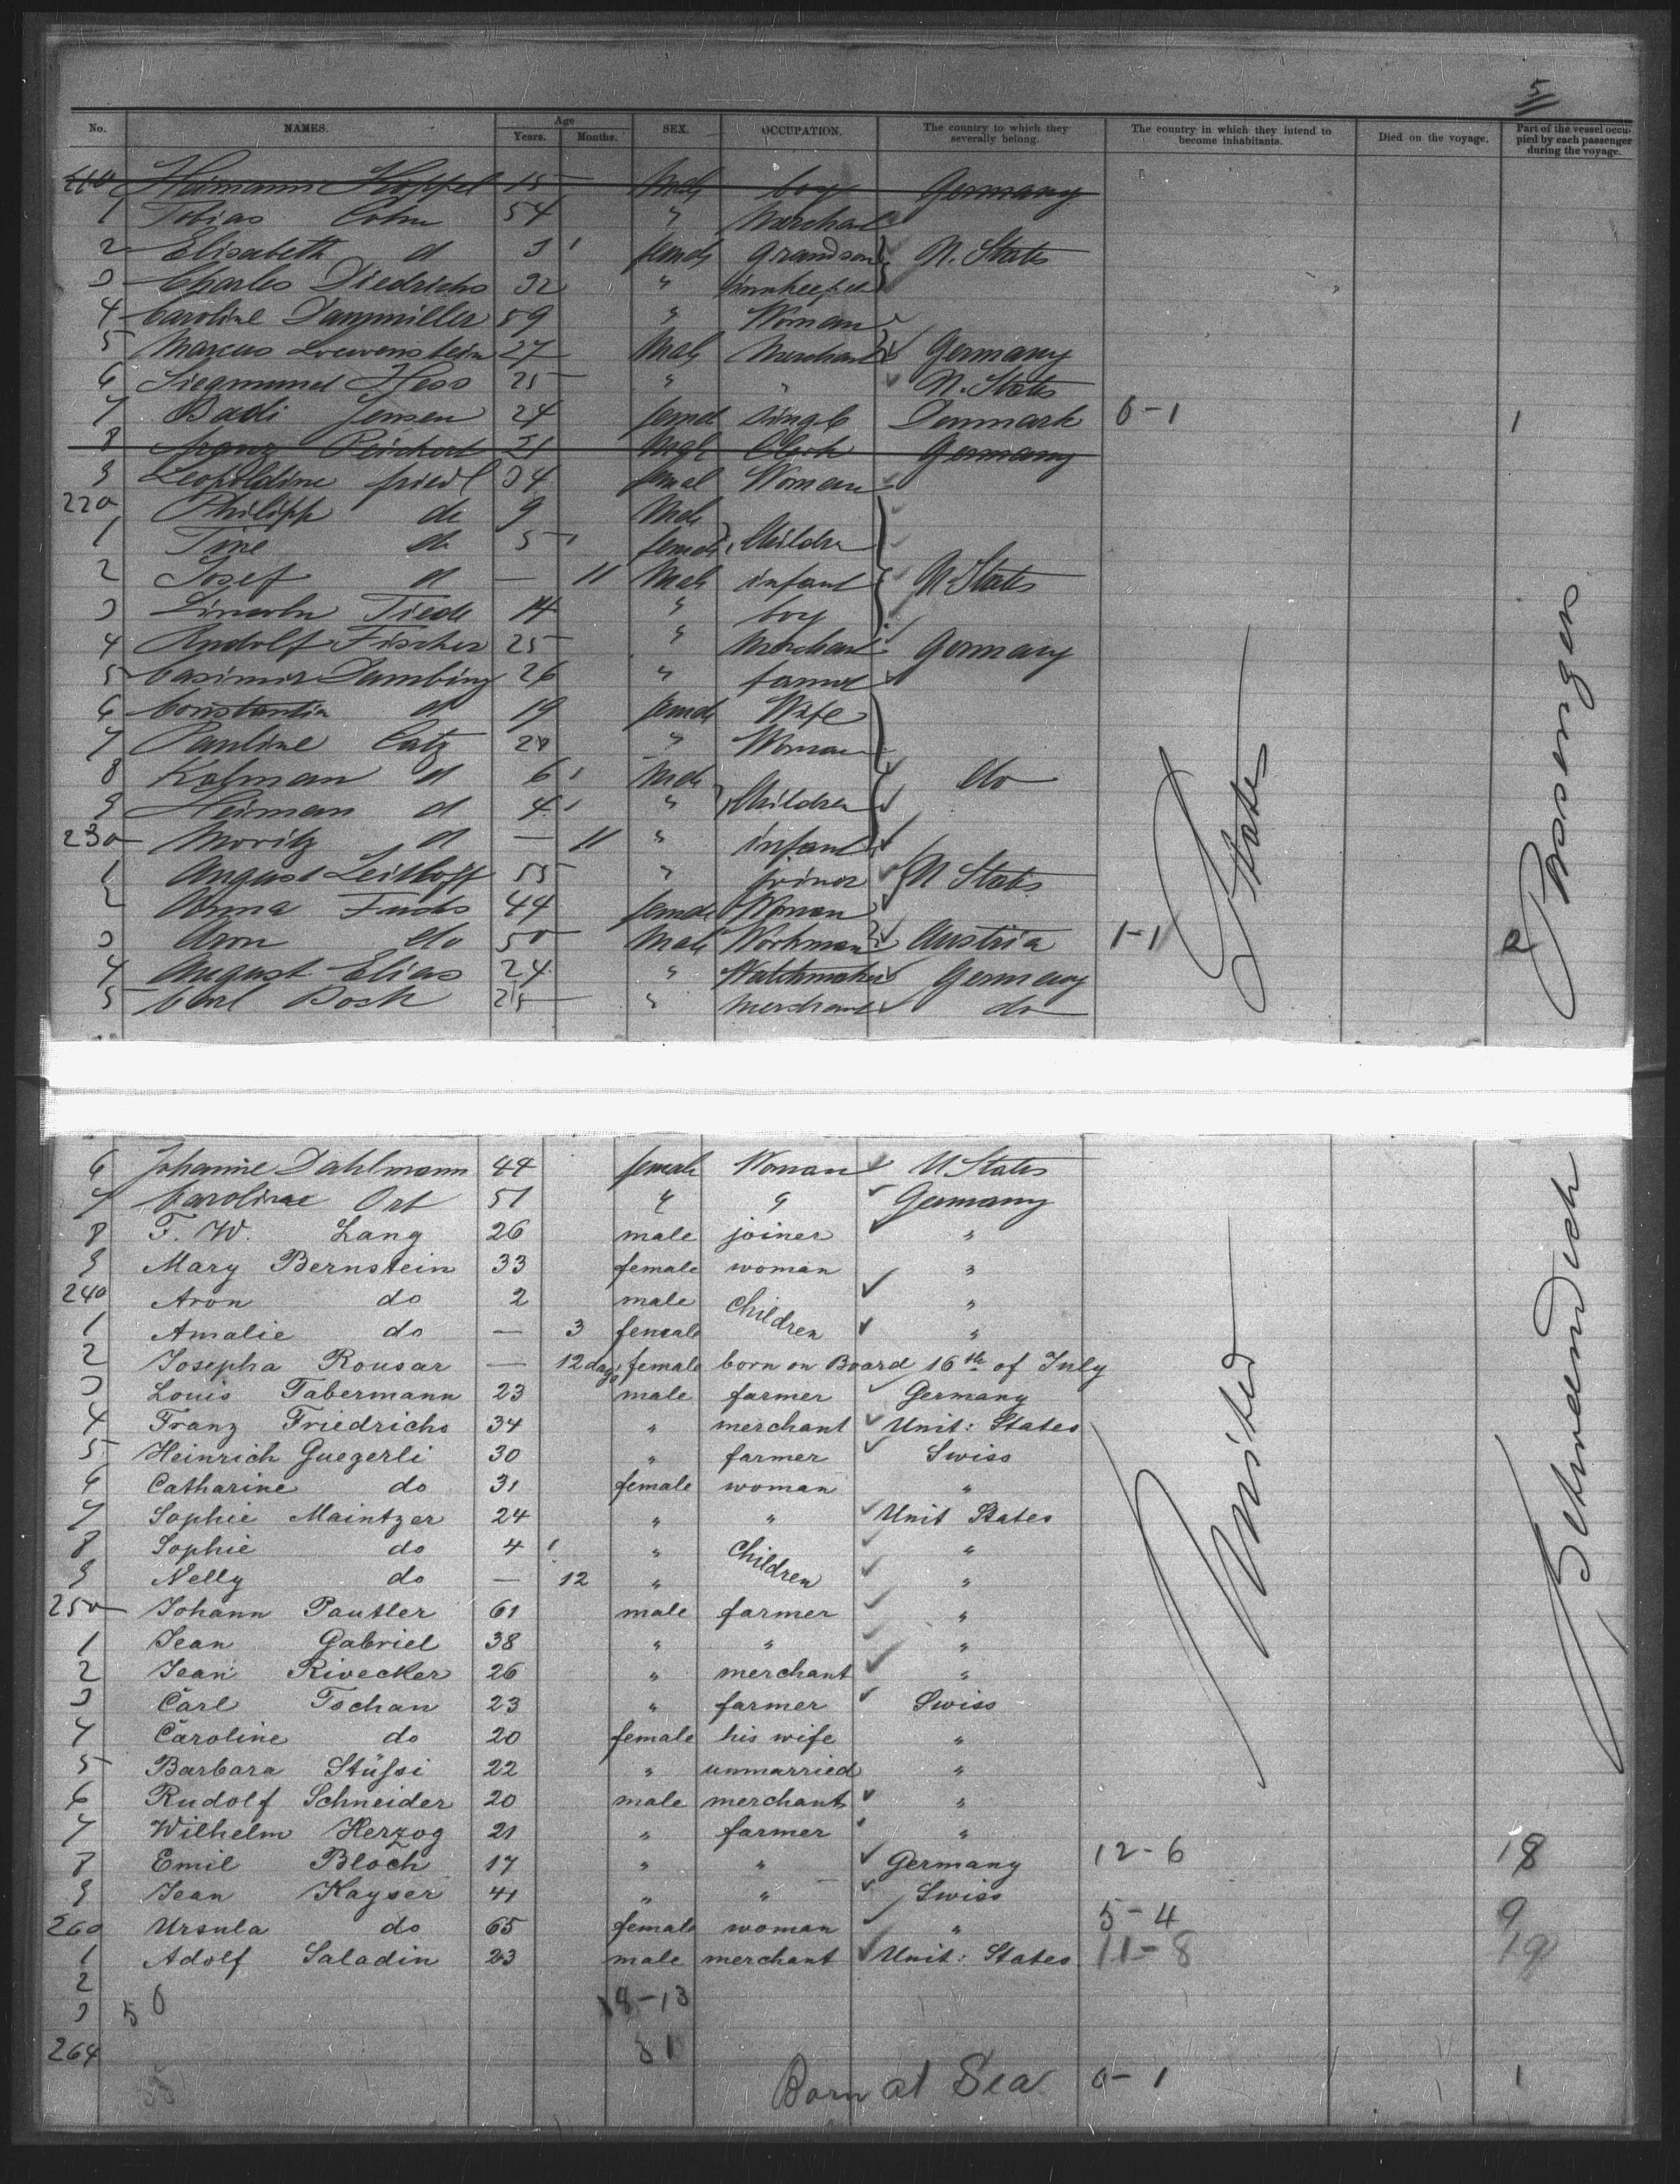 5
No. NAMES. Age Years. Months. SEX. OCCUPATION. The country to which they severally belong. The country in which they intend to become inhabitants. Died on the voyage. Part of the vessel occupied by each passenger during the voyage.
210 Heimann Koppel 15 Male boy Germany
1 Tobias Cohn 54 " Merchant
2 Elisabeth d 3 female Grandson U. States
3 Charles Diedrichs 32 " innkeeper
4 Caroline 59 " Woman
5 Marcus Loewenstein 27 Male Merchant Germany
6 Siegmund Hess 25 " " U. States
7 Jensen 24 female single Denmark 0-1 1
8 Franz Reichert 21 Male Clerk Germany
9 Leopoldine Friedl 34 female Woman
220 Philipp do 9 Male
1 Tine do 5 female Children
2 Josef d — 11 Male infant U. States
3 Lincoln Tiede 14 " boy
4 Rudolf Fischer 25 " Merchant Germany
5 Casimir 26 " farmer
6 Constantia d 19 female Wife
7 Pauline Catz 28 " Woman
8 Kalman d 6 Male do
9 Heiman d 4 " Children
230 Moritz d — 11 " infant
1 August Leithoff 55 " joiner U States
2 Anna Fuchs 44 female Woman
3 Aron do 50 Male Workman Austria 1-1 2
4 August Elias 24 " Watchmaker Germany
5 Carl Bock 25 " Merchant do
6 Johanne Dahlmann 44 female Woman U States
7 Caroline Ort 51 " " Germany
8 F. W. Lang 26 male joiner "
9 Mary Bernstein 33 female woman "
240 Aron do 2 male Children "
1 Amalie do — 3 female "
2 Josepha Rousar — 12 days female born on Board 16th of July
3 Louis Tabermann 23 male farmer Germany
4 Franz Friedrichs 34 " merchant Unit: States
5 Heinrich Guegerli 30 " farmer Swiss
6 Catharine do 31 female woman "
7 Sophie Maintzer 24 " " Unit States
8 Sophie do 4 " Children "
9 Nelly do — 12 " "
250 Johann Pautler 61 male farmer "
1 Jean Gabriel 38 " " "
2 Jean Rivecker 26 " merchant "
3 Carl Tschan 23 " farmer Swiss
4 Caroline do 20 female his wife "
5 Barbara Stüssi 22 " unmarried "
6 Rudolf Schneider 20 male merchant "
7 Wilhelm Herzog 21 " farmer "
8 Emil Bloch 17 " " Germany 12-6 18
9 Jean Kayser 41 " " Swiss
260 Ursula do 65 female woman " 5-4 9
1 Adolf Saladin 23 male merchant Unit: States 11-8 19
2
3 5 0 18-13
264 31
Born at Sea 0-1 1
United States
Passengers